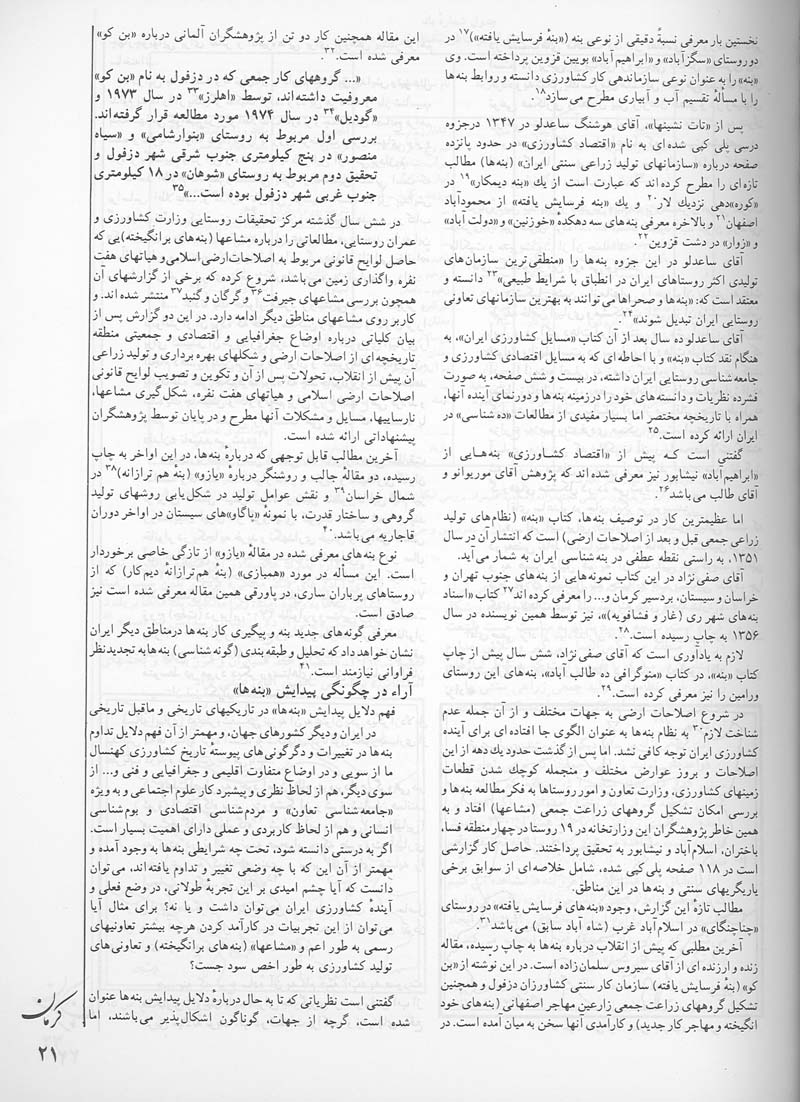 نخستین بار معرفی نسبةً دقیقی از نوعی بنه («بنهٔ فرسایش یافته»)۱۷ در
دو روستای «سگزآباد» و «ابراهیم آباد» بویین قزوین پرداخته است. وی
«بنه» را به عنوان نوعی سازماندهی کار کشاورزی دانسته و روابط بنه‌ها
را با مسألهٔ تقسیم آب و آبیاری مطرح می‌سازد۱۸.
پس از «تات نشینها»، آقای هوشنگ ساعدلو در ۱۳۴۷ درجزوه
درسی پلی کپی شده ای به نام «اقتصاد کشاورزی» در حدود پانزده
صفحه درباره «سازمانهای تولید زراعی سنتی ایران» (بنه‌ها) مطالب
تازه‌ای را مطرح کرده اند که عبارت است از یك «بنه دیمکار»۱۹ در
«کوره»دهی نزدیك لار۲۰ و یك «بنه فرسایش یافته» از محمودآباد
اصفهان۲۱ و بالاخره معرفی بنه‌های سه دهکدهٔ «خوزنین» و «دولت آباد»
و «زوار» در دشت قزوین۲۲.
آقای ساعدلو در این جزوه بنه‌ها را «منطقی‌ترین سازمان‌های
تولیدی اکثر روستاهای ایران در انطباق با شرایط طبیعی»۲۳ دانسته و
معتقد است که: «بنه‌ها و صحراها می‌توانند به بهترین سازمانهای تعاونی
روستایی ایران تبدیل شوند»۲۴.
آقای ساعدلو ده سال بعد از آن کتاب «مسایل کشاورزی ایران»، به
هنگام نقد کتاب «بنه» و با احاطه‌ای که به مسایل اقتصادی کشاورزی و
جامعه‌شناسی روستایی ایران داشته، در بیست و شش صفحه، به صورت
فشرده نظریات و دانسته‌های خود را درزمینه بنه‌ها و دورنمای آینده آنها،
همراه با تاریخچه مختصر اما بسیار مفیدی از مطالعات «ده شناسی» در
ایران ارائه کرده است.۲۵
گفتنی است کـه پیش از «اقتصاد کشـاورزی» بنه‌هـایی از
«ابراهیم‌آباد» نیشابور نیز معرفی شده اند که پژوهش آقای موریوانو و
آقای طالب می‌باشد۲۶.
اما عظیمترین کار در توصیف بنه‌ها، کتاب «بنه» (نظام‌های تولید
زراعی جمعی قبل و بعد از اصلاحات ارضی) است که انتشار آن در سال
۱۳۵۱، به راستی نقطه عطفی در بنه‌شناسی ایران به شمار می‌آید.
آقای صفی‌نژاد در این کتاب نمونه‌هایی از بنه‌های جنوب تهران و
خراسان و سیستان، بردسیر کرمان و... را معرفی کرده اند۲۷ کتاب «اسناد
بنه‌های شهر ری (غار و فشافویه)»، نیز توسط همین نویسنده در سال
۱۳۵۶ به چاپ رسیده است.۲۸
لازم به یادآوری است که آقای صفی‌نژاد، شش سال پیش از چاپ
کتاب «بنه»، در کتاب «منوگرافی ده طالب آباد»، بنه‌های این روستای
ورامین را نیز معرفی کرده است.۲۹
در شروع اصلاحات ارضی به جهات مختلف و از آن جمله عدم
شناخت لازم۳۰ به نظام بنه‌ها به عنوان الگوی جا افتاده ای برای آینده
کشاورزی ایران توجه کافی نشد. اما پس از گذشت حدود یك دهه از این
اصلاحات و بروز عوارض مختلف و منجمله کوچك شدن قطعات
زمینهای کشاورزی، وزارت تعاون و امور روستاها به فکر مطالعه بنه‌ها و
بررسی امکان تشکیل گروههای زراعت جمعی (مشاعها) افتاد و به
همین خاطر پژوهشگران این وزارتخانه در ۱۹ روستا در چهار منطقه فسا،
باختران، اسلام‌آباد و نیشابور به تحقیق پرداختند. حاصل کار گزارشی
است در ۱۱۸ صفحه پلی کپی شده، شامل خلاصه‌ای از سوابق برخی
یاریگریهای سنتی و بنه‌ها در این مناطق.
مطالب تازهٔ این گزارش، وجود «بنه‌های فرسایش یافته» در روستای
«چناچنگای» در اسلام‌آباد غرب (شاه آباد سابق) می‌باشد۳۱.
آخرین مطلبی که پیش از انقلاب درباره بنه‌ها به چاپ رسیده، مقاله
زنده و ارزنده ای از آقای سیروس سلمان‌زاده است. در این نوشته از «بن
کو» (بنهٔ فرسایش یافته) سازمان کار سنتی کشاورزان دزفول و همچنین
تشکیل گروههای زراعت جمعی زارعین مهاجر اصفهانی (بنه‌های خود
انگیخته و مهاجر کار جدید) و کارآمدی آنها سخن به میان آمده است. در
این مقاله همچنین کار دو تن از پژوهشگران آلمانی درباره «بن کو»
معرفی شده است.۳۲
«... گروههای کار جمعی که در دزفول به نام «بن کو»
معروفیت داشته‌اند، توسط «اهلرز»۳۳ در سال ۱۹۷۳ و
«گودبل»۳۴ در سال ۱۹۷۴ مورد مطالعه قرار گرفته‌اند.
بررسی اول مربوط به روستای «بنوارشامی» و «سیاه
منصور» در پنج کیلومتری جنوب شرقی شهر دزفول و
تحقیق دوم مربوط به روستای «شوهان» در ۱۸ کیلومتری
جنوب غربی شهر دزفول بوده است...»۳۵
در شش سال گذشته مرکز تحقیقات روستایی وزارت کشاورزی و
عمران روستایی، مطالعاتی را درباره مشاعها (بنه‌های برانگیخته)یی که
حاصل لوایح قانونی مربوط به اصلاحات ارضی اسلامی و هیاتهای هفت
نفره واگذاری زمین می‌باشد، شروع کرده که برخی از گزارشهای آن
همچون بررسی مشاعهای جیرفت۳۶ و گرگان و گنبد۳۷ منتشر شده اند. و
کار بر روی مشاعهای مناطق دیگر ادامه دارد. در این دو گزارش پس از
بیان کلیاتی درباره اوضاع جغرافیایی و اقتصادی و جمعیتی منطقه
تاریخچه‌ای از اصلاحات ارضی و شکلهای بهره برداری و تولید زراعی
آن پیش از انقلاب، تحولات پس از آن و تکوین و تصویب لوایح قانونی
اصلاحات ارضی اسلامی و هیاتهای هفت نفره، شکل‌گیری مشاعها،
نارساییها، مسایل و مشکلات آنها مطرح و در پایان توسط پژوهشگران
پیشنهاداتی ارائه شده است.
آخرین مطالب قابل توجهی که دربارهٔ بنه‌ها، در این اواخر به چاپ
رسیده، دو مقالهٔ جالب و روشنگر دربارهٔ «یازو» (بنهٔ هم ترازانه)۳۸ در
شمال خراسان۳۹ و نقش عوامل تولید در شکل‌یابی روشهای تولید
گروهی و ساختار قدرت، با نمونهٔ «پاگاو»های سیستان در اواخر دوران
قاجاریه می‌باشد.۴۰
نوع بنه‌های معرفی شده در مقالهٔ «یازو» از تازگی خاصی برخوردار
است. این مسأله در مورد «همبازی» (بنهٔ هم‌ترازانهٔ دیم‌کار) که از
روستاهای پرباران ساری، در پاورقی همین مقاله معرفی شده است نیز
صادق است.
معرفی گونه‌های جدید بنه و پیگیری کار بنه‌ها درمناطق دیگر ایران
نشان خواهد داد که تحلیل و طبقه بندی (گونه‌شناسی) بنه‌ها به تجدیدنظر
فراوانی نیازمند است.۴۱
آراء در چگونگی پیدایش «بنه‌ها»
فهم دلایل پیدایش «بنه‌ها» در تاریکیهای تاریخی و ماقبل تاریخی
در ایران و دیگر کشورهای جهان، و مهمتر از آن فهم دلایل تداوم
بنه‌ها در تغییرات و دگرگونی‌های پیوستهٔ تاریخ کشاورزی کهنسال
ما از سویی و در اوضاع متفاوت اقلیمی و جغرافیایی و فنی و... از
سوی دیگر، هم از لحاظ نظری و پیشبرد کار علوم اجتماعی و به ویژه
«جامعه‌شناسی تعاون» و مردم‌شناسی اقتصادی و بوم‌شناسی
انسانی و هم از لحاظ کاربردی و عملی دارای اهمیت بسیار است.
اگر به درستی دانسته شود، تحت چه شرایطی بنه‌ها به وجود آمده و
مهمتر از آن این که با چه وضعی تغییر و تداوم یافته‌اند، می‌توان
دانست که آیا چشم امیدی بر این تجربهٔ طولانی، در وضع فعلی و
آیندهٔ کشاورزی ایران می‌توان داشت و یا نه؟ برای مثال آیا
می‌توان از این تجربیات در کارآمد کردن هرچه بیشتر تعاونیهای
رسمی به طور اعم و «مشاعها» (بنه‌های برانگیخته) و تعاونی‌های
تولید کشاورزی به طور اخص سود جست؟
گفتنی است نظریاتی که تا به حال دربارهٔ دلایل پیدایش بنه‌ها عنوان
شده است، گرچه از جهات، گوناگون اشکال‌پذیر می‌باشند، اما
کرمان
۲۱